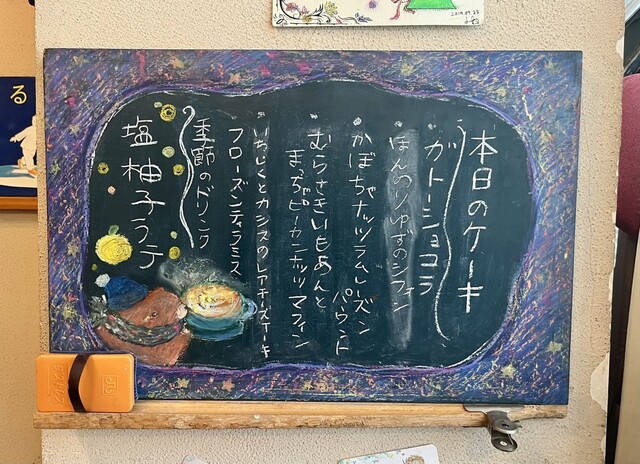 本日のケーキ
ガトーショコラ
ほんのりゆずのシフォン
かぼちゃナッツラムレーズン
パウンド
むらさきいもあんと
まっちゃピーカンナッツ マフィン
いちじくとカシスのレアチーズケーキ
フローズンティラミス
季節のドリンク
塩柚子ラテ
る